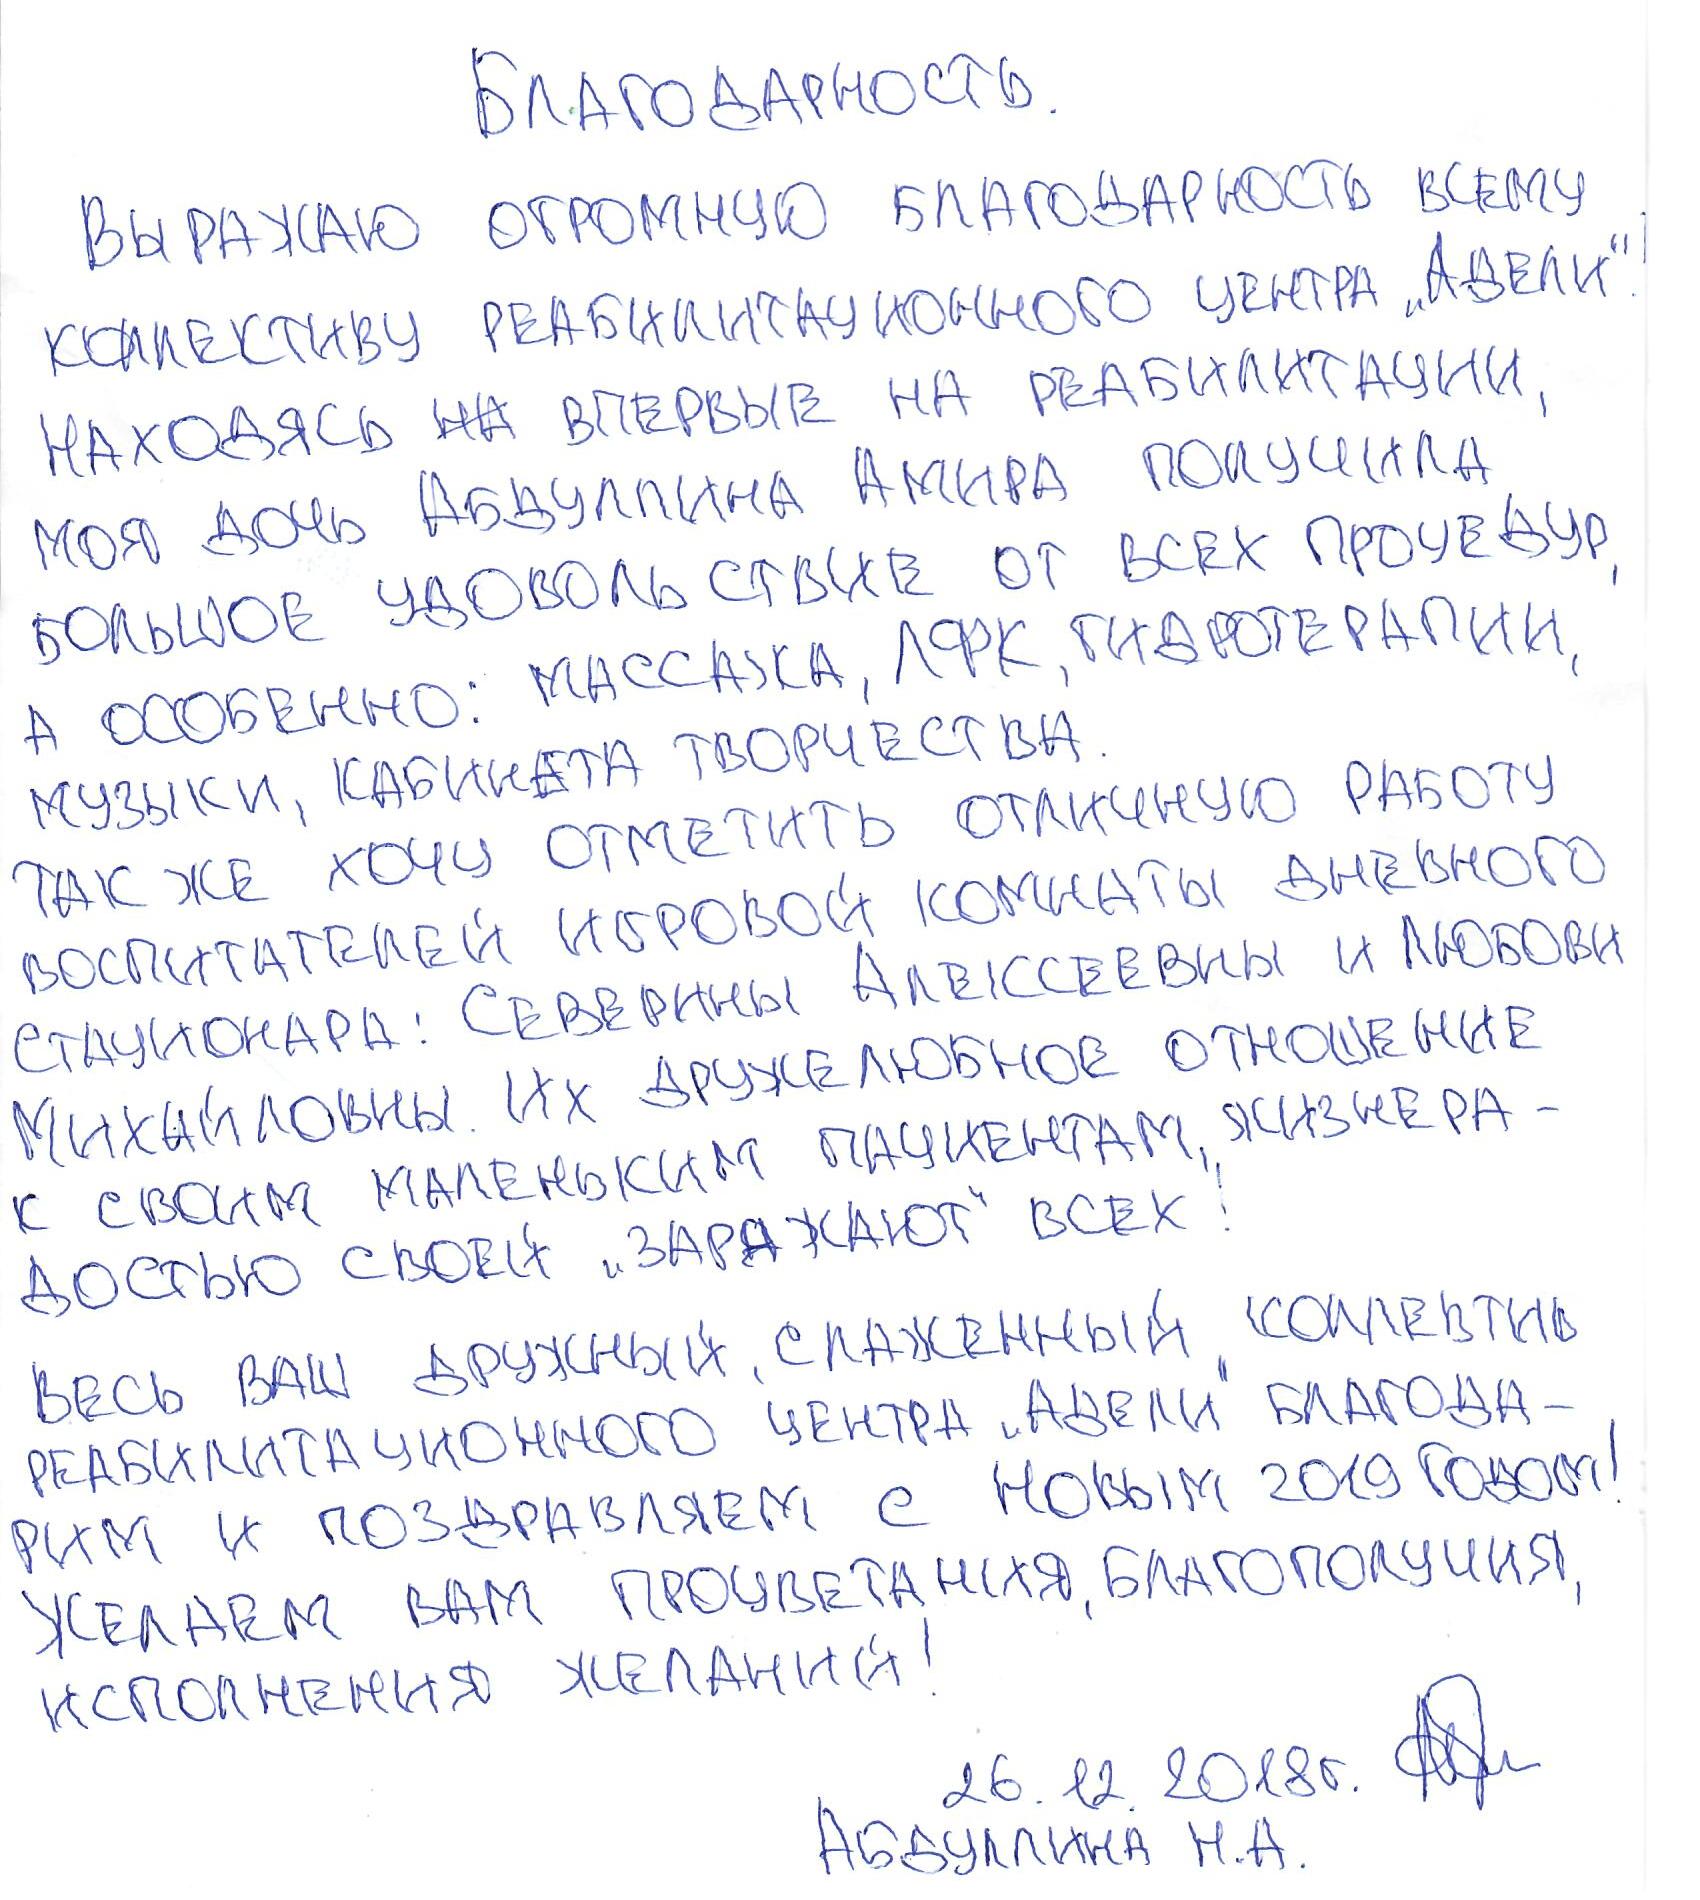 Благодарность.
Выражаю огромную благодарность всему
коллективу реабилитационного центра „Адели“!
Находясь на впервые на реабилитации,
моя дочь Абдуллина Амира получила
большое удовольствие от всех процедур,
а особенно: массажа, ЛФК, гидротерапии,
музыки, кабинета творчества.
Так же хочу отметить отличную работу
воспитателей игровой комнаты дневного
стационара: Северины Алексеевны и Любови
Михайловны. Их дружелюбное отношение
к своим маленьким пациентам, жизнера-
достью своей „заражают“ всех!
Весь ваш дружный, слаженный, коллевтив
реабилитационного центра „Адели“ благода-
рим и поздравляем с Новым 2019 Годом!
Желаем вам процветания, благополучия,
исполнения желаний!
26.12.2018г.
Абдуллина Н.А.